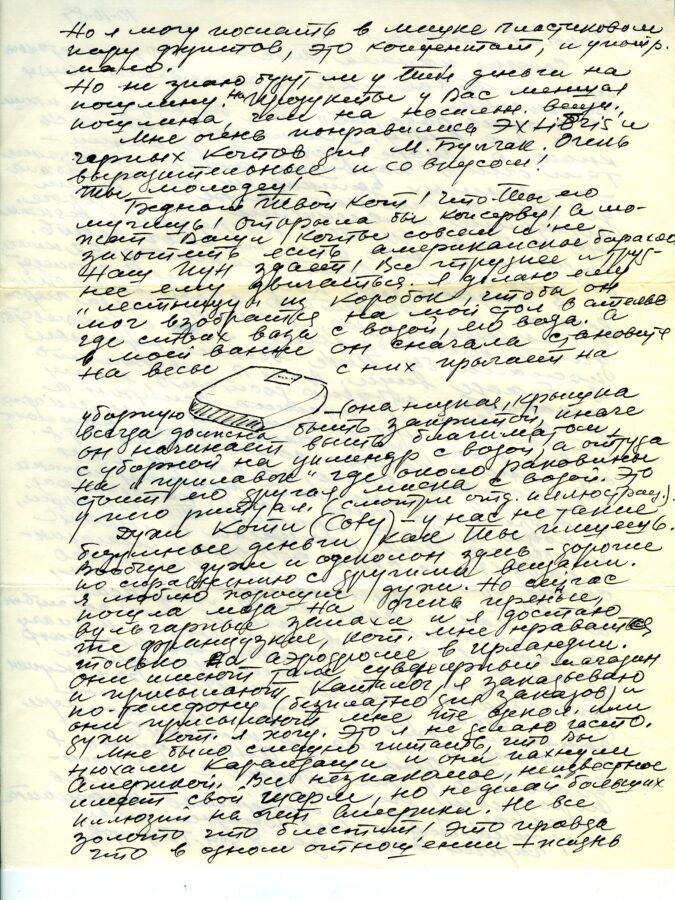 Но я могу послать в мешке пластиковом
пару фунтов, это концентрат, и употр.
мало.
Но не знаю будут ли у Тебя деньги на
пошлину. На продукты у Вас меньшая
пошлина, чем на носильн. вещи.
Мне очень понравились Ex Libris и
черных котов для М. Булчак. Очень
выразительные и со вкусом!
Ты молодец!
Бедный Твой Кот! Что Ты его
мучишь! Открыла бы консерву! А мо-
жет Ваши Коты совсем и не
захотят есть американское барахло.
Наш Пун сдает! Все труднее и труд-
нее ему двигаться. Я делаю ему
"лестницу" из коробок, чтобы он
мог взобраться на мой стол в ателье
где стоит ваза с водой, его вода. А
в моей ванне он сначала становится
на весы с них прыгает на
уборную (она низкая, крышка
всегда должна быть закрытой, иначе
он начинает выть благим матом,
с уборной на цилиндр с водой, а оттуда
на "прилавок" где около раковины
стоит его другая миска с водой. Это
у него ритуал. (смотри отд. иллюстрац.)
Духи Коти (Coty) – у нас не такие
безумные деньги, как Ты пишешь.
Вообще духи и одеколон здесь – дорогие
по сравнению с другими вещами.
Я люблю хорошие духи. Но сейчас
пошла мода на очень пряные,
вульгарные запахи и я достаю
те французские кот. мне нравятся
только на аэродроме в Ирландии.
Они имеют там сувенирный магазин
и присылают Каталог, я заказываю
по телефону (бесплатно для заказов) и
они присылают мне те одекол. или
духи кот. я хочу. Это я не делаю часто.
Мне было смешно читать, что Вы
нюхали Карандаши и они пахнули
Америкой. Все незнакомое, неизвестное
имеет свой шарм, но не делай больших
иллюзий на счет Америки. Не все
золото что блестит! Это правда
что в одном отношении – жизнь